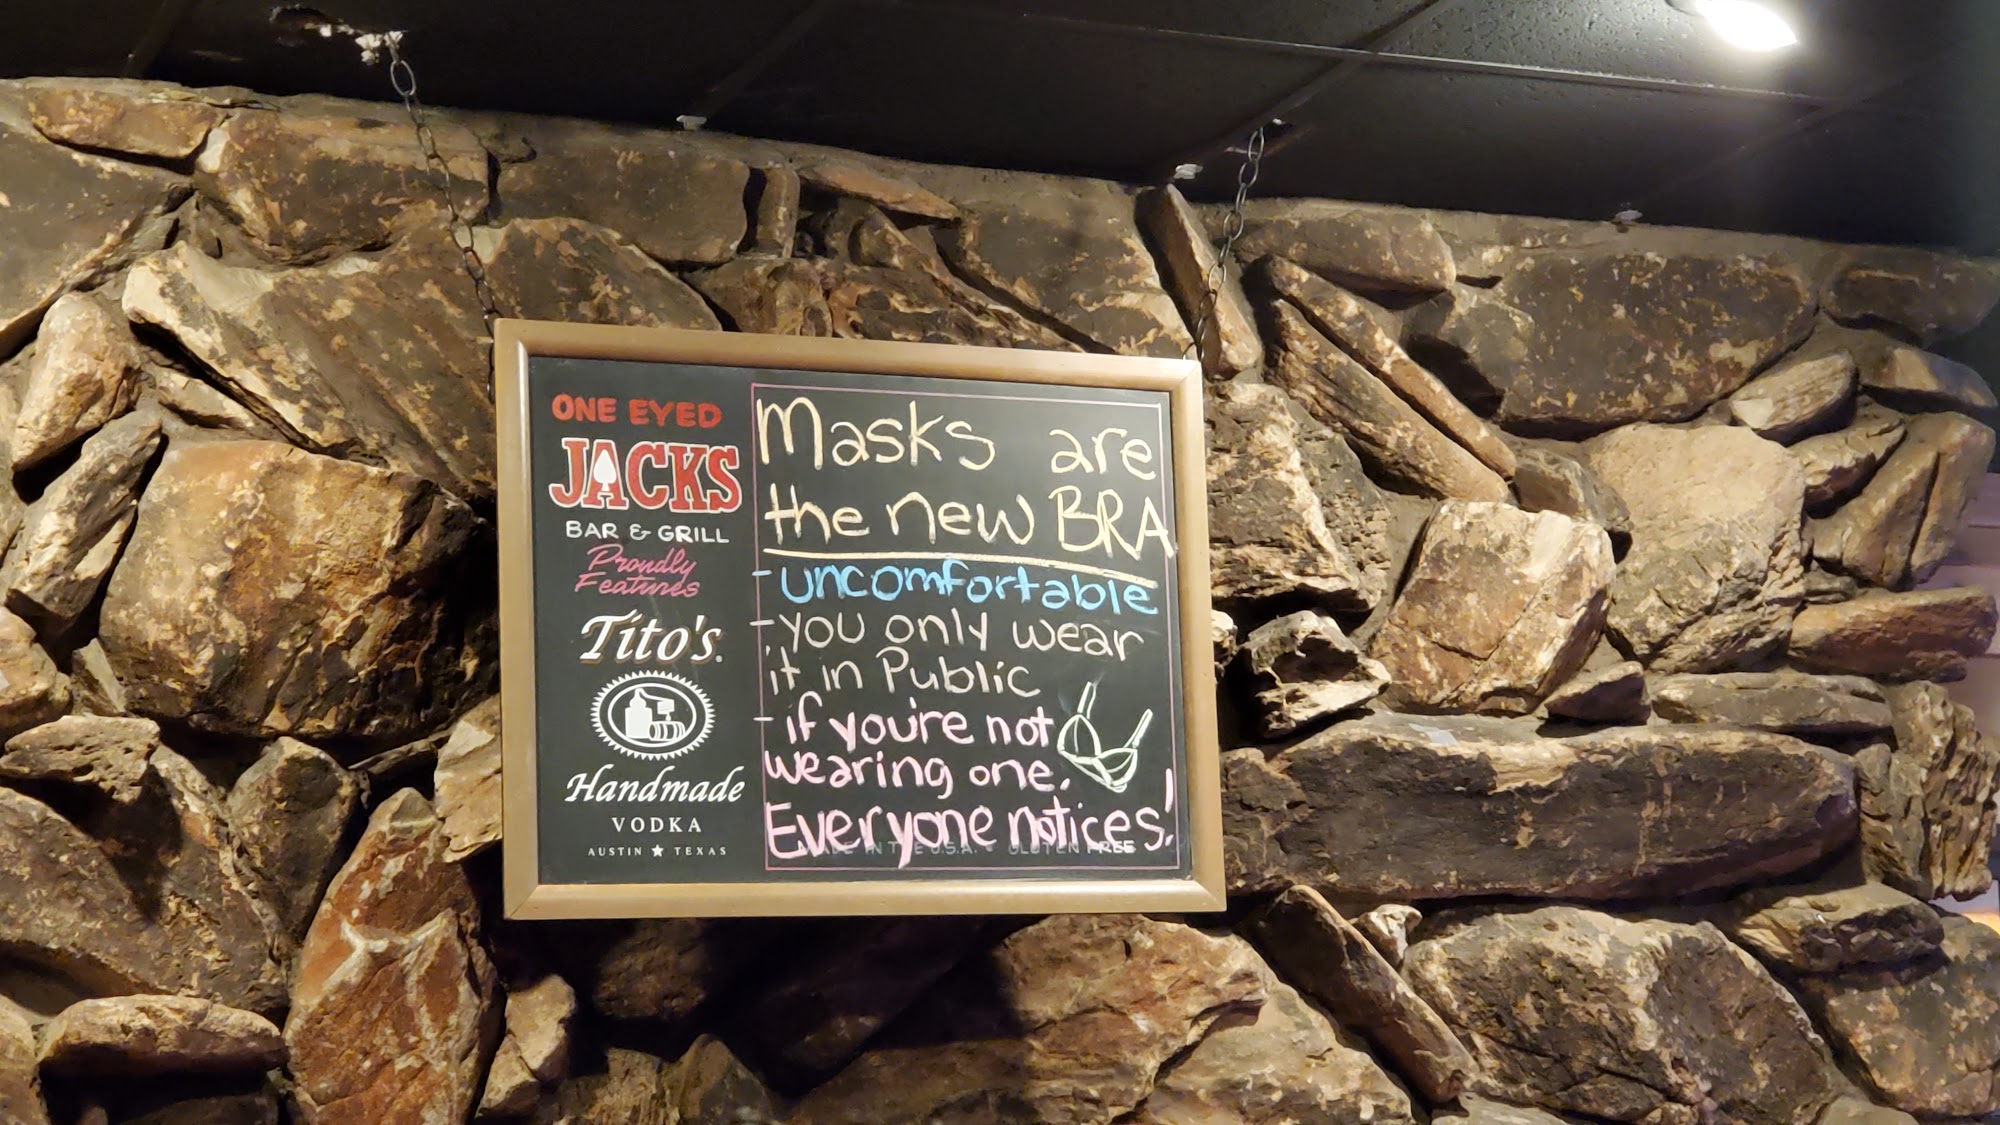 ONE EYED
JACKS
BAR & GRILL
Proudly
Features
Tito's
Handmade
VODKA
AUSTIN ★ TEXAS
Masks are
the new BRA
- uncomfortable
- you only wear
it in Public
- if you're not
wearing one.
Everyone notices!
MADE IN THE U.S.A. • GLUTEN FREE